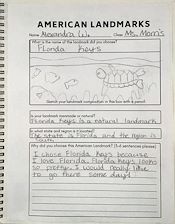 AMERICAN LANDMARKS
Name: Alexandra W. Class: Ms. Morris
What is the name of the landmark did you choose?
Florida Keys
Sketch your landmark composition in this box with a pencil.
Is your landmark manmade or natural?
Florida Keys is a natural landmark
In what state and region is it located?
The state is Florida and the region is
South
Why did you choose this American Landmark? (3-4 sentences please)
I chose Florida Keys because
I love Florida. Florida Keys looks
so pretty. I would really like
to go there some day!